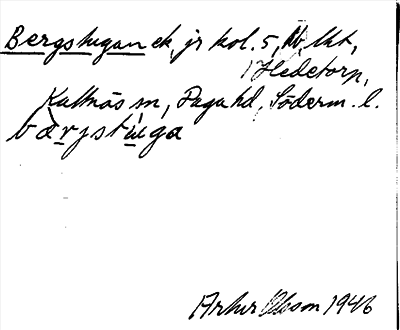 Bergstugan ek, jr kol. 5, Ab, lkt,
Hedetorp,
Kattnäs sn, Daga hd, Söderm. l.
bàrjstùga
Arhur Olsson 1946